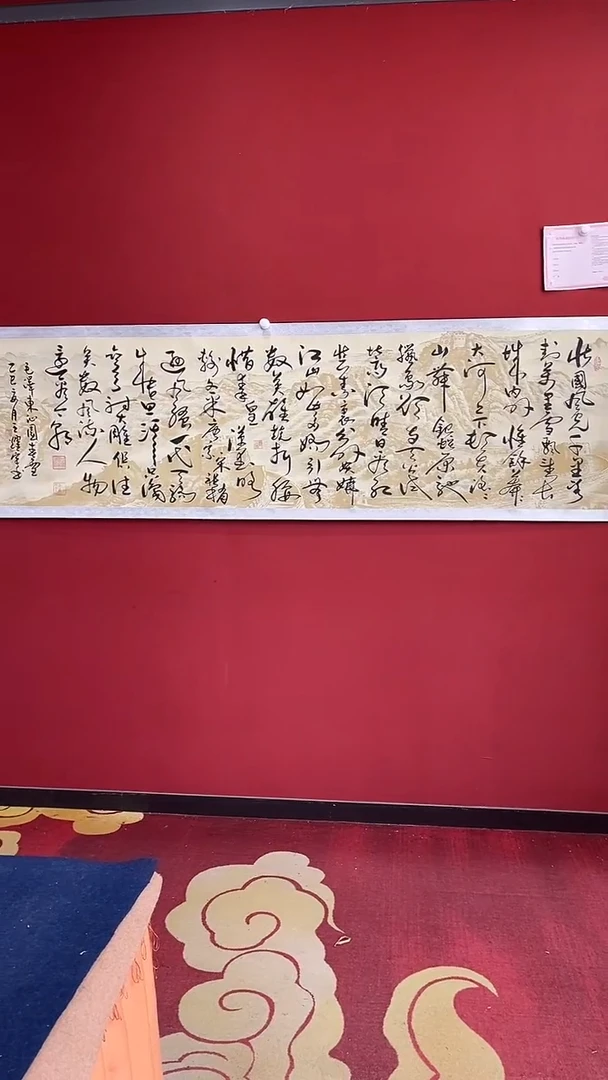 北國風光千里冰
封萬里雪飄望長
城内外惟餘莽々
大河上下頓失滔々
山舞銀蛇原馳
蠟象欲与天公試
比高須晴日看紅
裝素裹分外妖娆
江山如此多嬌引無
數英雄競折腰
惜秦皇漢武略
輸文采唐宗宋祖稍
遜風騷一代天驕
成吉思汗只識
彎弓射雕俱往
矣數風流人物
還看今朝
毛澤東沁園春雪
乙巳